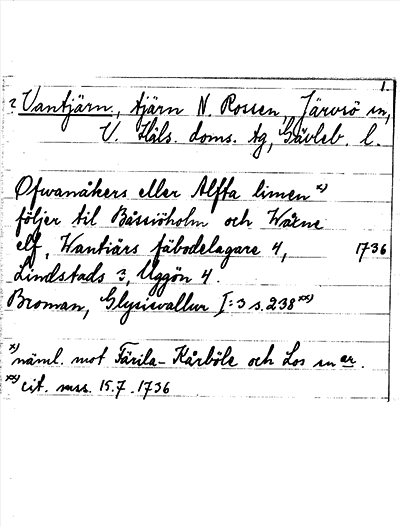 1.
? Vantjärn, tjärn N. Rossen, Järvsö sn,
V. Häls. doms. tg, Gävleb. l.
Ofwanåkers eller Alfta limen x)
följer til Båssiöholm och Wärne
elf, Wantiärs fäbodelagare 4, 1736
Lindstads ?, Uggön 4.
Broman, Glysisvallur I:3 s. 238 xx)
x) näml. mot Färila-Kårböle och Los snar.
xx) cit. mss. 15.7.1736